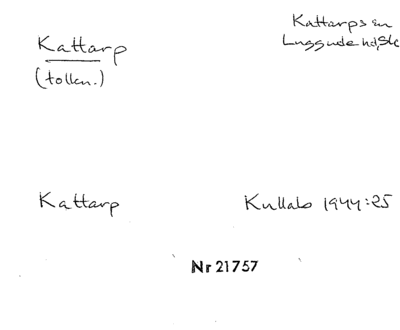 Kattarp
(tolkn.)
Kattarps sn
Luggude hd, Sk
Kattarp
Kullabo 1944:25
Nr 21757